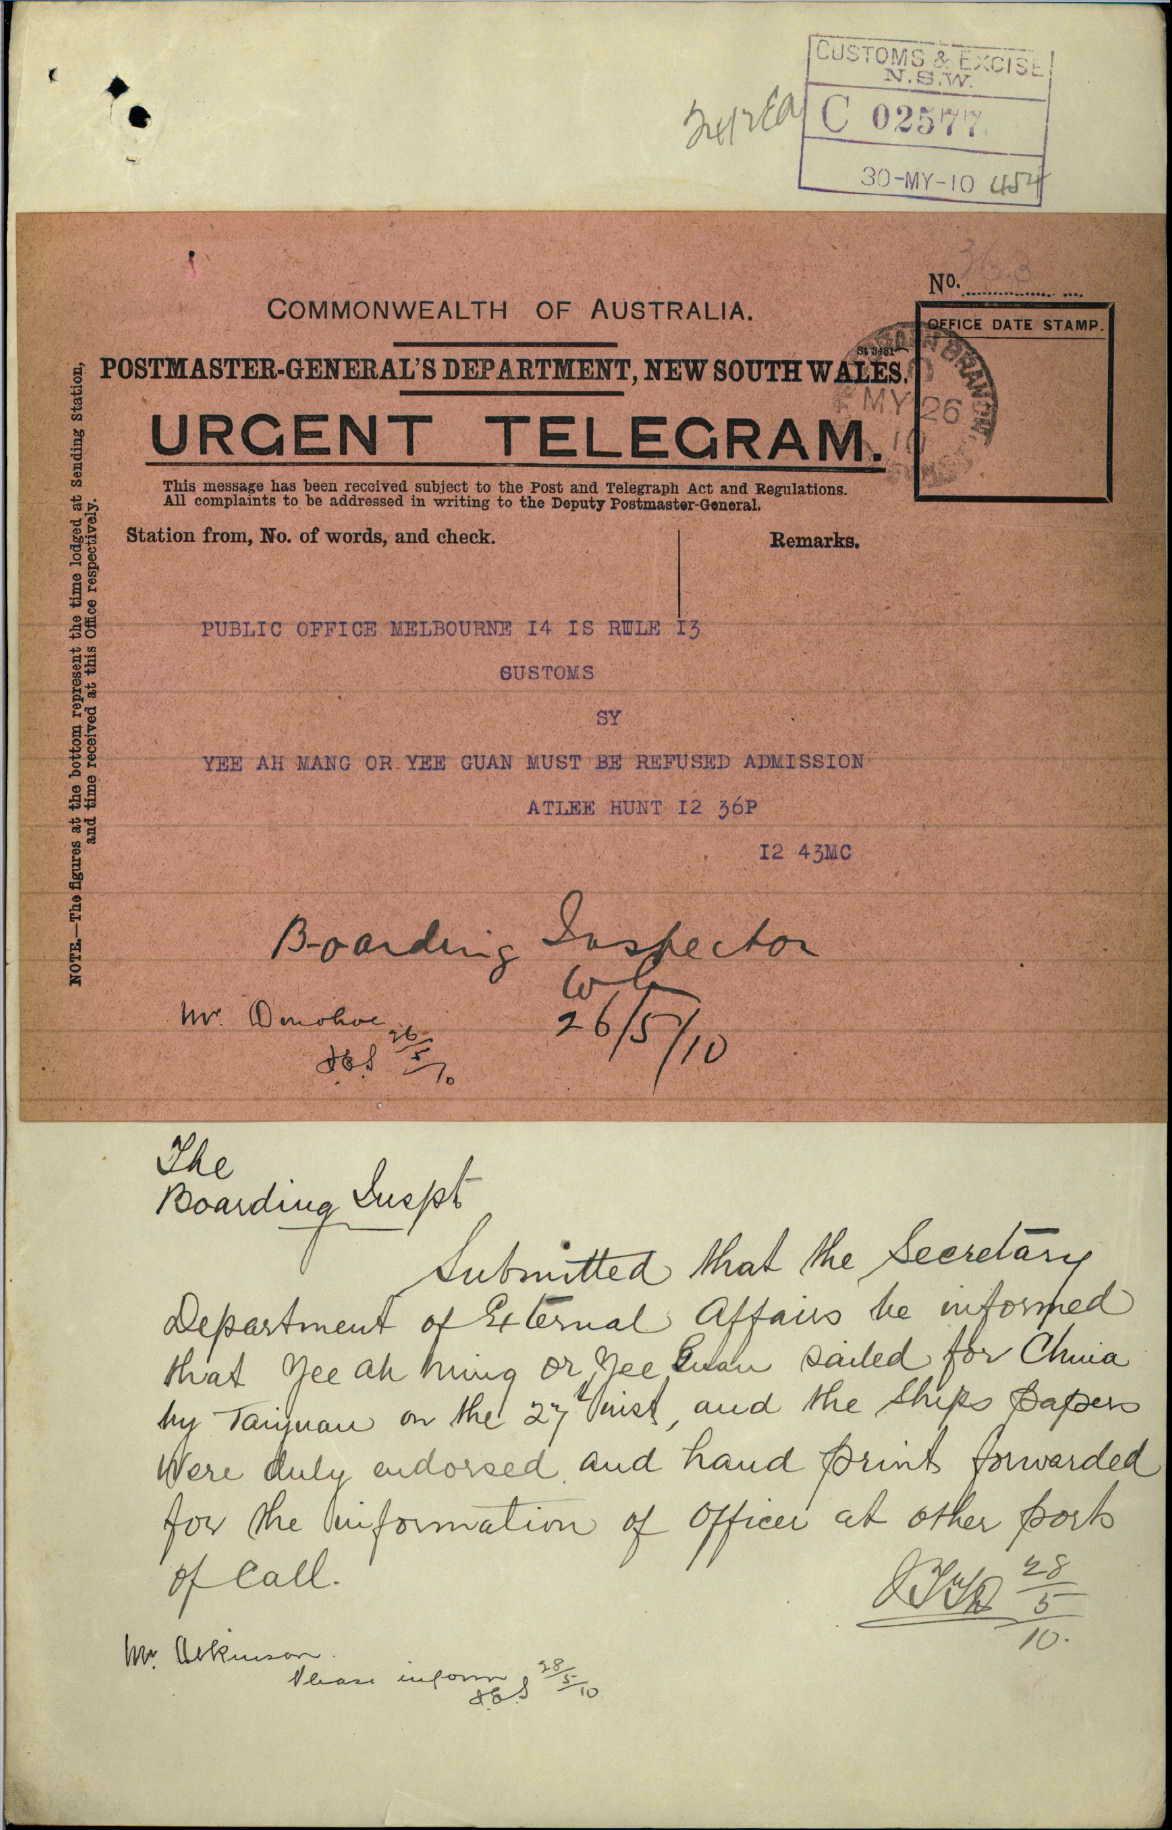 CUSTOMS & EXCISE
N.S.W.
C 02577
30-MY-10 454
No.
OFFICE DATE STAMP.
COMMONWEALTH OF AUSTRALIA.
POSTMASTER-GENERAL'S DEPARTMENT, NEW SOUTH WALES.
MY 26
10
URGENT TELEGRAM.
This message has been received subject to the Post and Telegraph Act and Regulations.
All complaints to be addressed in writing to the Deputy Postmaster-General.
Station from, No. of words, and check.
Remarks.
NOTE.—The figures at the bottom represent the time lodged at Sending Station,
and time received at this Office respectively.
PUBLIC OFFICE MELBOURNE I4 IS RULE I3
CUSTOMS
SY
YEE AH MANG OR YEE GUAN MUST BE REFUSED ADMISSION
ATLEE HUNT I2 36P
I2 43MC
Boarding Inspector
26/5/10
Mr. Donohoe
26/5/10
The
Boarding Inspt
Submitted that the Secretary
Department of External Affairs be informed
that Yee Ah Ming or Yee Guan sailed for China
by Taiyuan on the 27th inst, and the ships papers
were duly endorsed and hand print forwarded
for the information of Officer at other ports
of Call.
JTTD 28/5/10.
Mr. Atkinson
Please inform
28/5/10